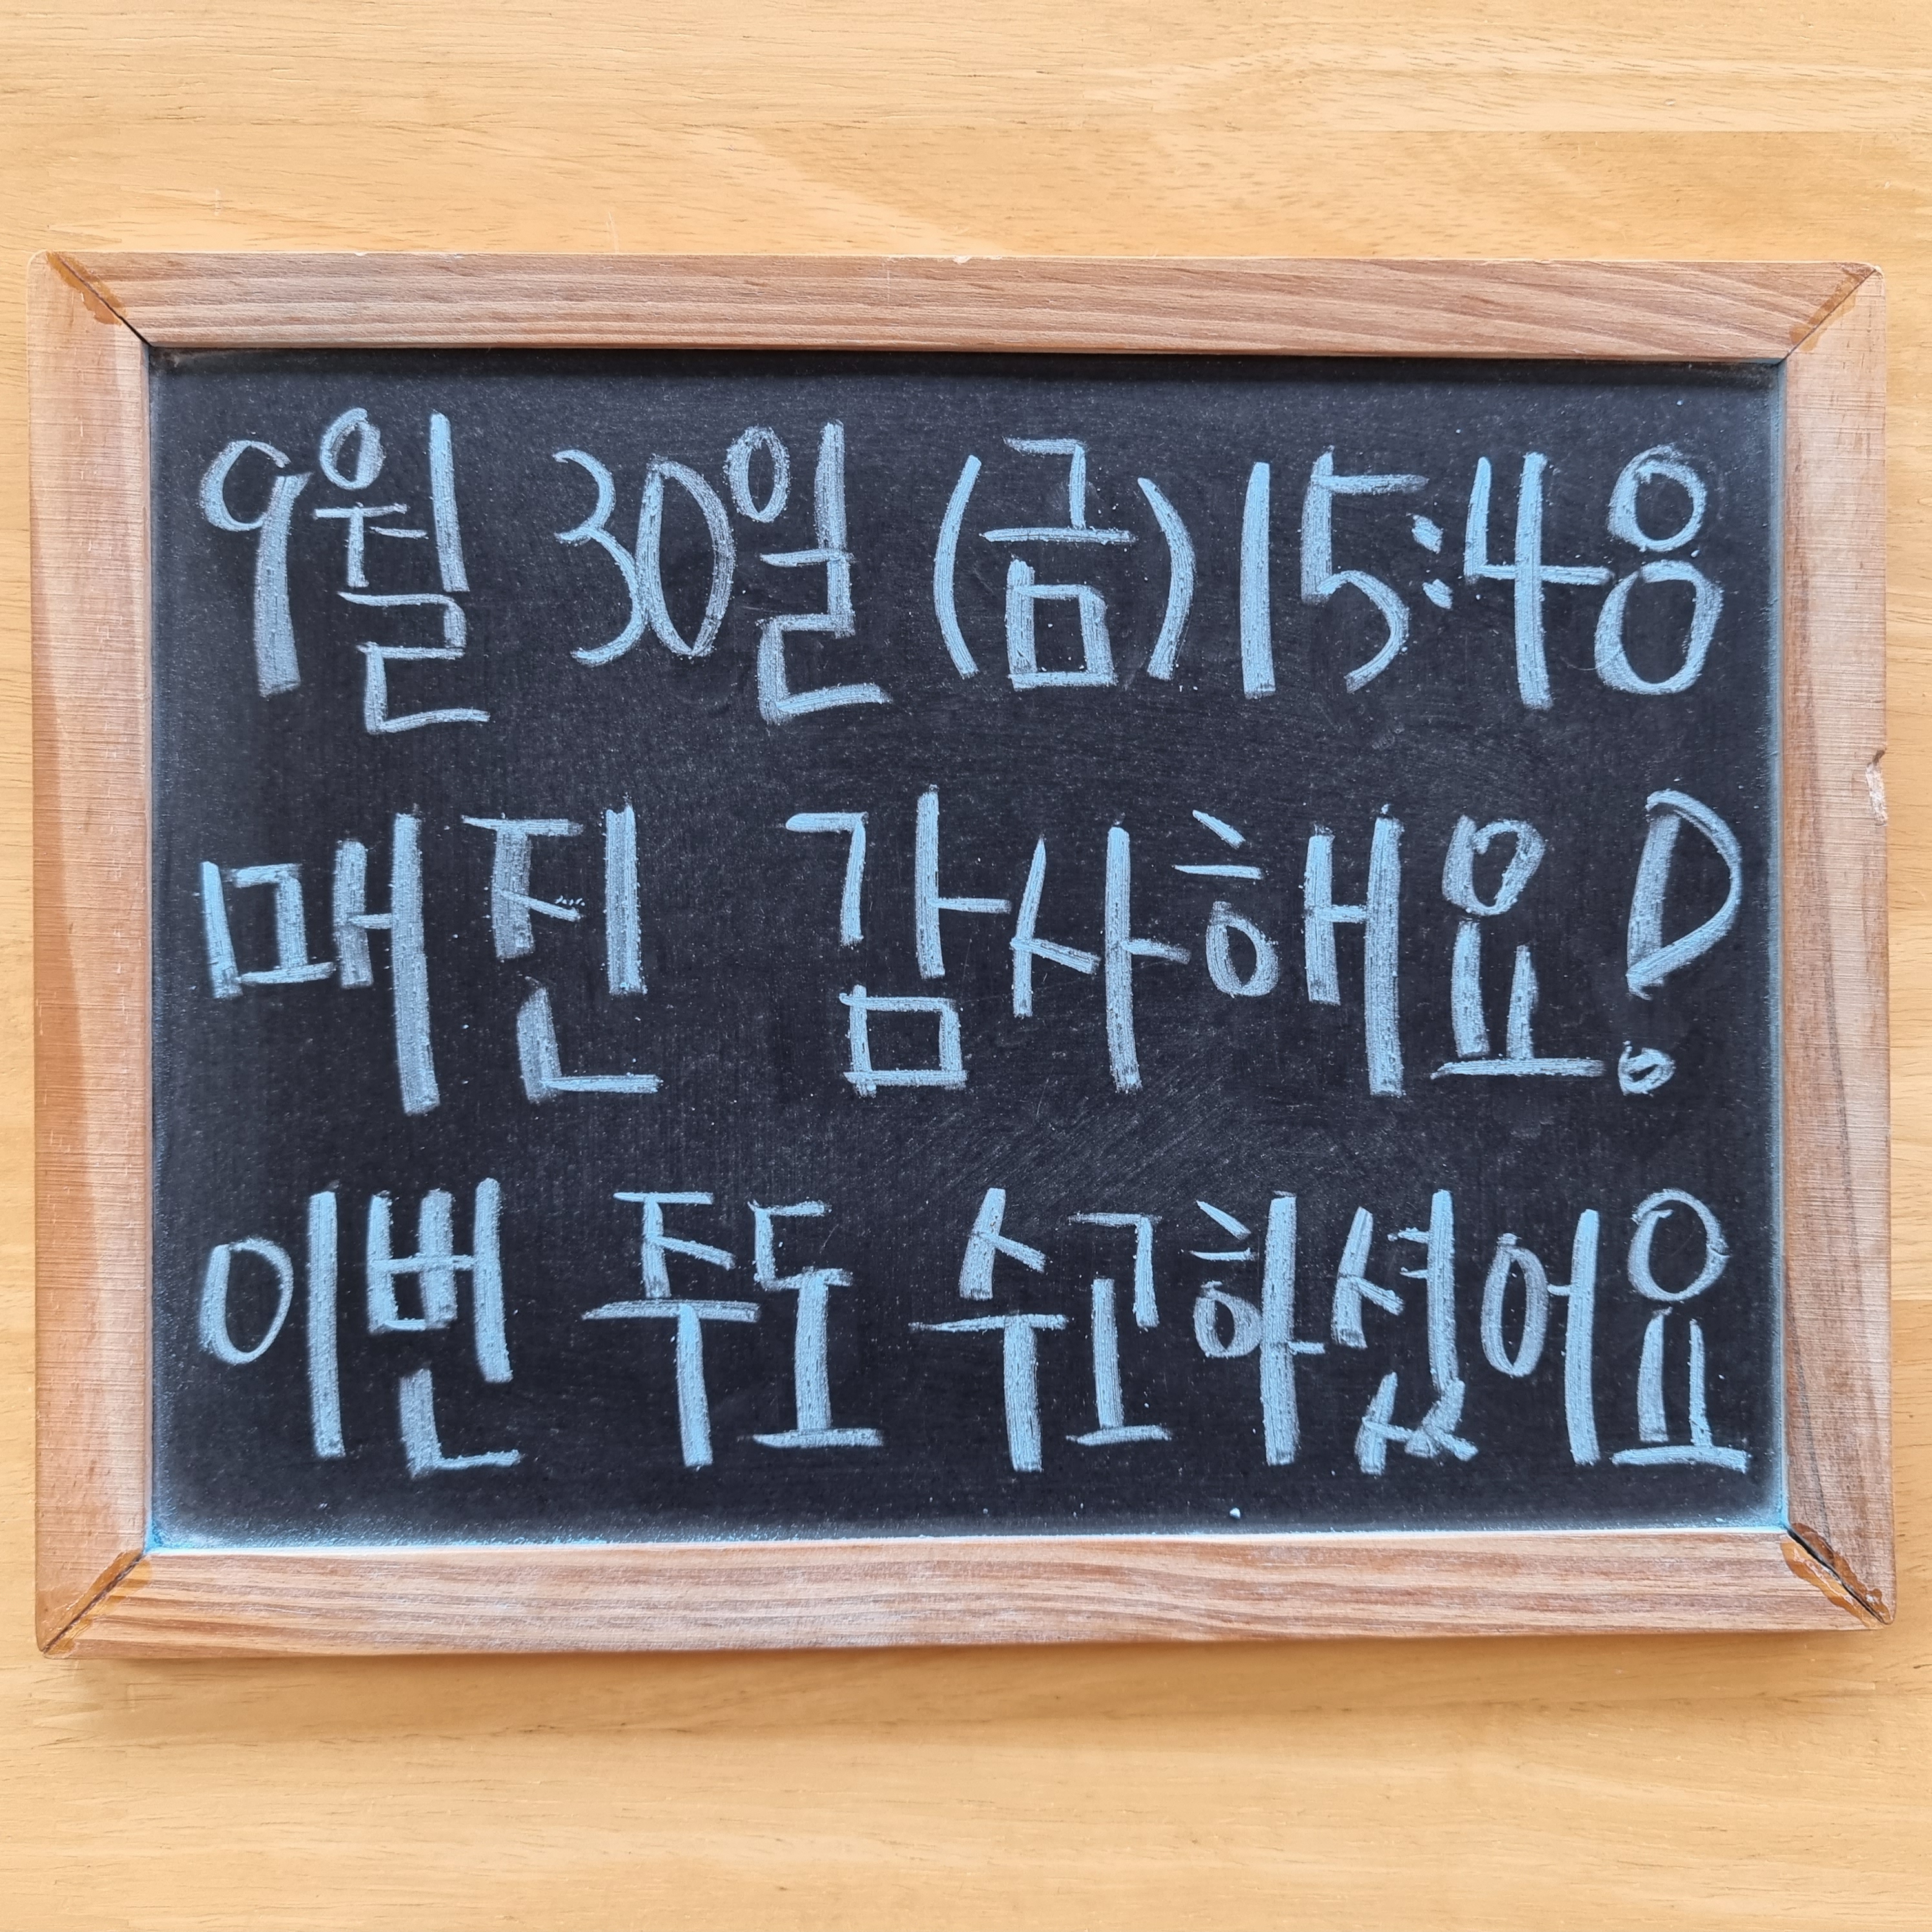 9월 30일 (금) 15:48
매진 감사해요!
이번 주도 수고하셨어요